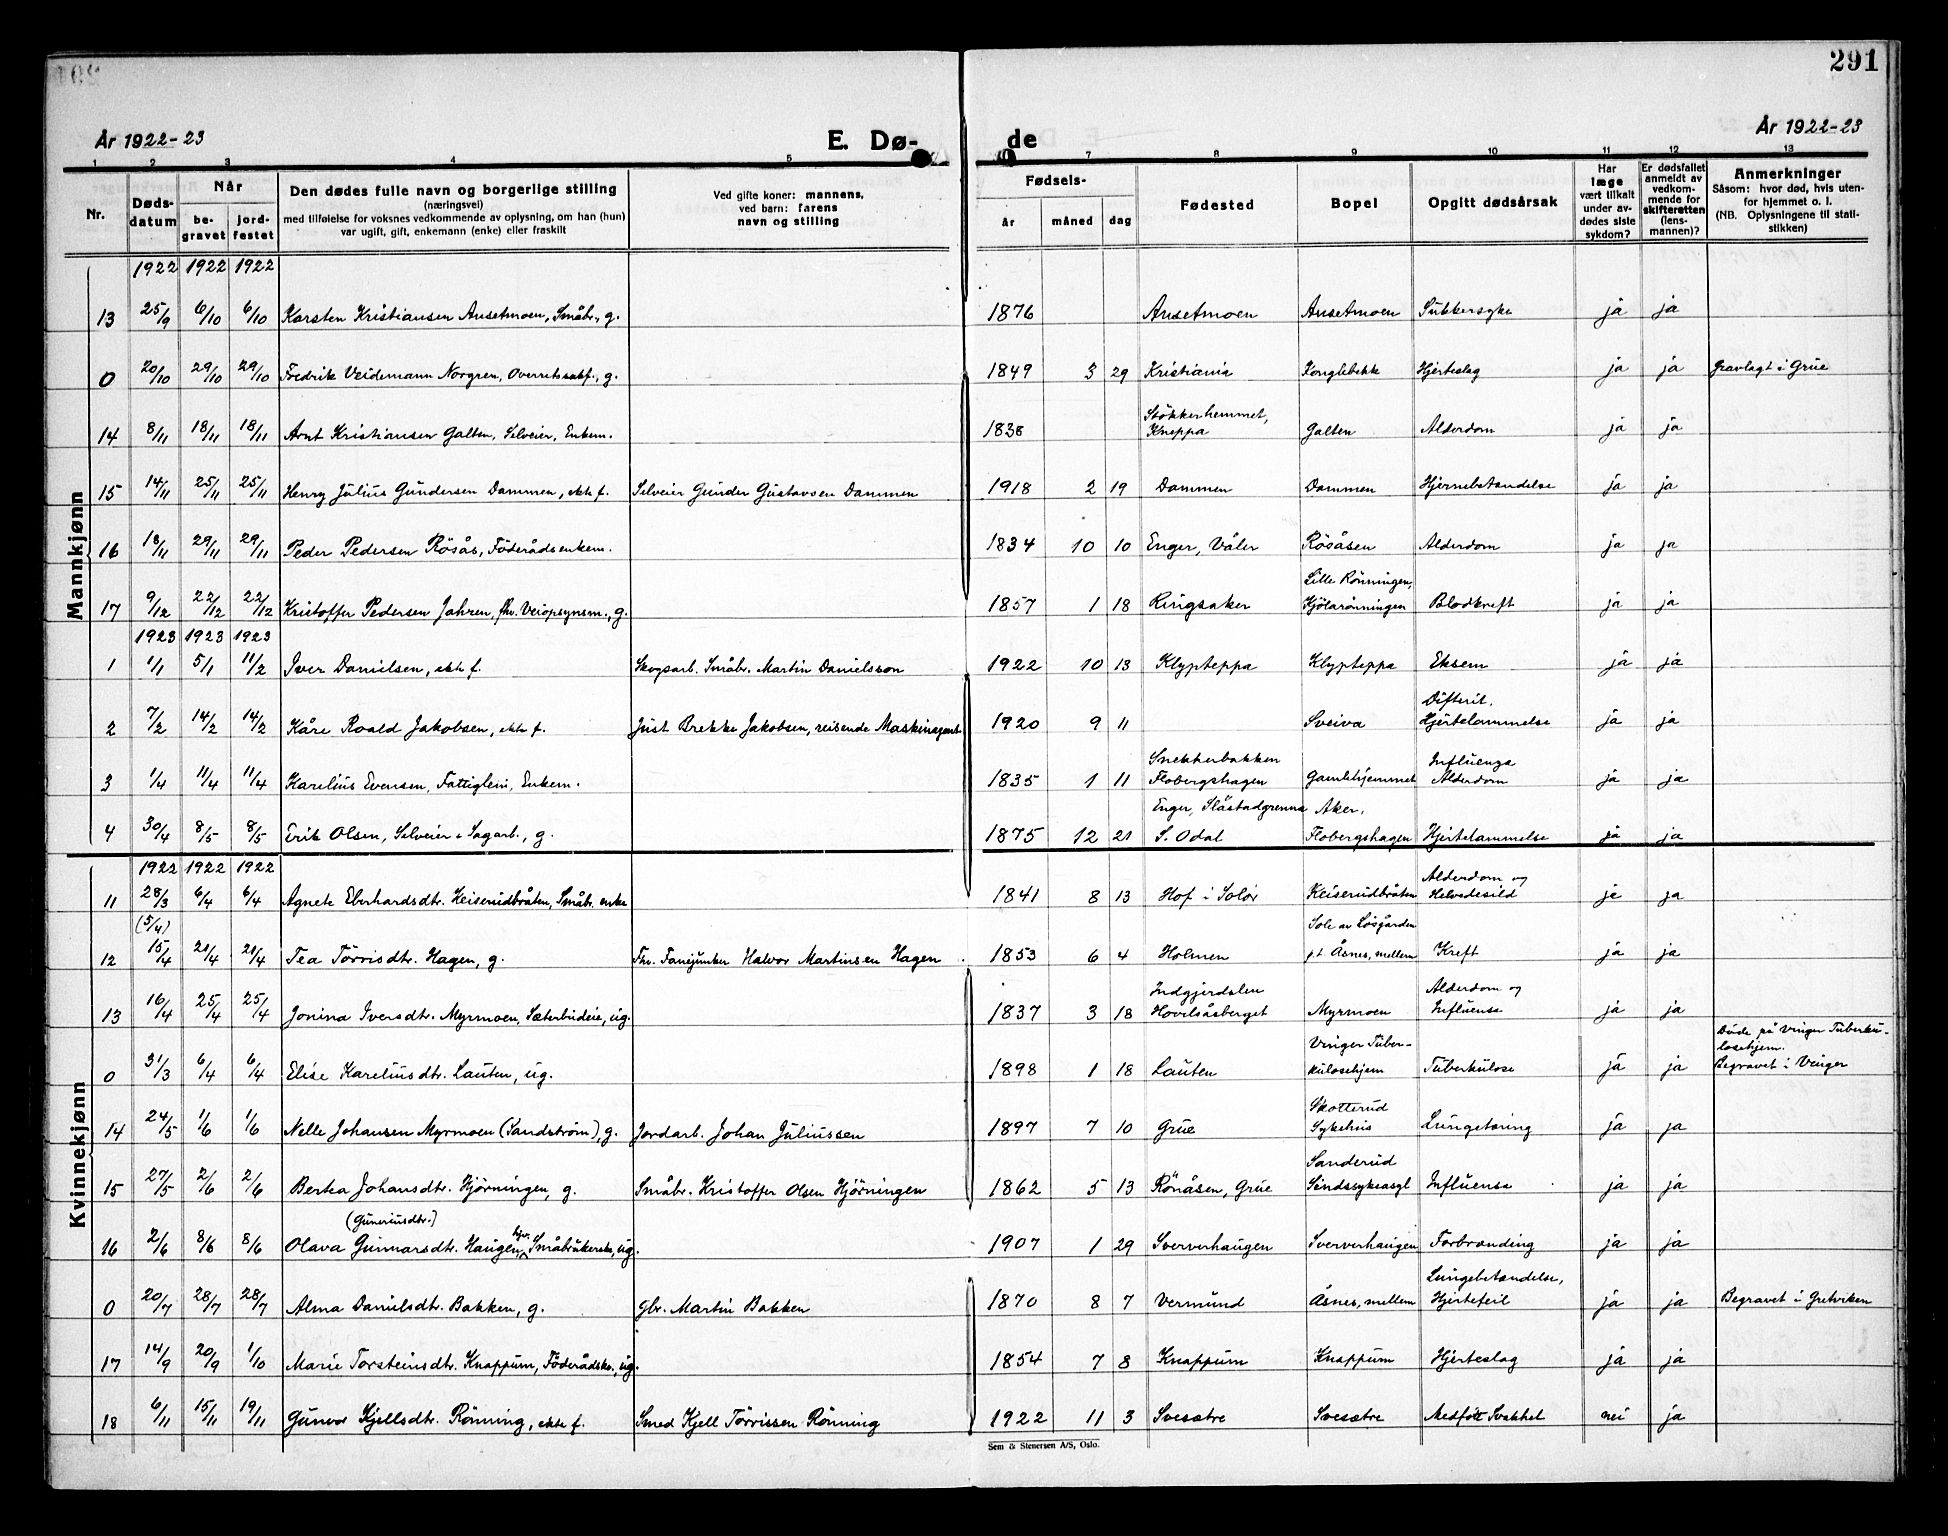 291
År 1922-23 E. Dø- de År 1922-23
1 2 3 4 5 7 8 9 10 11 12 13
Nr. Dødsdatum Når begravet jordfestet Den dødes fulle navn og borgerlige stilling (næringsvei) med tilføielse for voksnes vedkommende av oplysning, om han (hun) var ugift, gift, enkemann (enke) eller fraskilt Ved gifte koner: mannens, ved barn: farens navn og stilling Fødsels- år måned dag Fødested Bopel Opgitt dødsårsak Har læge vært tilkalt under avdødes siste sykdom? Er dødsfallet anmeldt av vedkommende for skifteretten (lensmannen)? Anmerkninger Såsom: hvor død, hvis utenfor hjemmet o. l. (NB. Oplysningene til statistikken)
Mannkjønn
1922 1922 1922
13 25/9 6/10 6/10 Karsten Kristiansen Ansetmoen, Småbr., g. 1876 Ansetmoen Ansetmoen Sukkersyke ja ja
0 20/10 29/10 29/10 Fredrik Veidemann Norgren, Overretssakf., g. 1849 3 29 Kristiania Konglebekk Hjerteslag ja ja Gravlagt i Grue
14 8/11 18/11 18/11 Arnt Kristiansen Galten, Selveier, Enkem. 1838 Stökkerhemmet, Kneppa Galten Alderdom ja ja
15 14/11 25/11 25/11 Henry Julius Gundersen Dammen, ekte f. Selveier Gunder Gustavsen Dammen 1918 2 19 Dammen Dammen Hjernebetændelse ja ja
16 18/11 29/11 29/11 Peder Pedersen Rösås, Föderådsenkem. 1834 10 10 Enger, Våler Rösåsen Alderdom ja ja
17 9/12 22/12 22/12 Kristoffer Pedersen Jahren, fhv. Veiopsynsm., g. 1857 1 18 Ringsaker Lille Rönningen, Kjölarönningen Blodkreft ja ja
1923 1923 1923
1 1/1 5/1 11/2 Iver Danielsen, ekte f. Skogsarb. Småbr. Martin Danielsson 1922 10 13 Klypteppa Klypteppa Eksem ja ja
2 7/2 14/2 14/2 Kåre Roald Jakobsen, ekte f. Just Brekke Jakobsen, reisende Maskinagent 1920 9 11 Sveiva Difterit, Hjertelammelse ja ja
3 1/4 11/4 11/4 Karelius Evensen, Fattiglem, Enkem. 1835 1 11 Snekkerbakken Flobergshagen Gamlehjemmet Influenza Alderdom ja ja
4 30/4 8/5 8/5 Erik Olsen, Selveier & Sagarb., g. 1875 12 21 Enger, Slåstadgrenna S. Odal Aker, Flobergshagen Hjertelammelse ja ja
Kvinnekjønn
1922 1922 1922
11 28/3 6/4 6/4 Agnete Eberhardsdtr. Keiserudbråten, Småbr. enke 1841 8 13 Hof i Solör Keiserudbråten Alderdom og Helvedesild ja ja
(5/4)
12 15/4 21/4 21/4 Tea Törrisdtr. Hagen, g. Fhv. Fanejunker Halvor Martinsen Hagen 1853 6 4 Holmen Sole av Lösgården p.t. Åsnes, mellem Kreft ja ja
13 16/4 25/4 25/4 Jonina Iversdtr. Myrmoen, Sæterbudeie, ug. 1837 3 18 Indgjerdslen Hovilsåsberget Myrmoen Alderdom og Influense ja ja
0 31/3 6/4 6/4 Elise Kareliusdtr. Lauten, ug. 1898 1 18 Lauten Vinger Tuberkulosehjem Tuberkulose ja ja Døde på Vinger Tuberkulosehjem. Begravet i Vinger
14 24/5 1/6 1/6 Nelle Johansen Myrmoen (Sandström), g. Jordarb. Johan Juliussen 1897 7 10 Grue Skotterud Sykehus Lungetæring ja ja
15 27/5 2/6 2/6 Bertea Johansdtr. Hjörningen, g. Småbr. Kristoffer Olsen Hjörningen 1862 5 13 Rönåsen, Grue Sanderud Sindssykeasyl Influense ja ja
(Guneriusdtr.)
16 2/6 8/6 8/6 Olava Gunnarsdtr. Haugen, hjv. Småbrukerske, ug. 1907 1 29 Sververhaugen Sververhaugen Forbrænding ja ja
0 20/7 28/7 28/7 Alma Danielsdtr. Bakken, g. Gbr. Martin Bakken 1870 8 7 Vermund Åsnes, mellem Lungebetændelse, Hjertefeil ja ja Begravet i Gretviken
17 14/9 20/9 1/10 Marie Torsteinsdtr. Knappum, Föderådsk., ug. 1854 7 8 Knappum Knappum Hjerteslag ja ja
18 6/11 15/11 19/11 Gunvor Kjellsdtr. Rönning, ekte f. Smed Kjell Törrissen Rönning 1922 11 3 Svesætre Svesætre Medfött Svakhet nei ja
Sem & Stenersen A/S, Oslo.